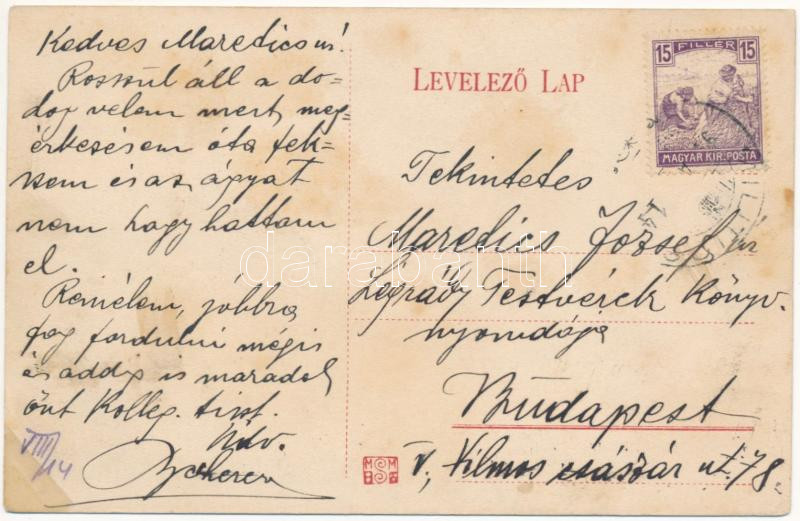 Kedves Maredicsúr!
Rosszul áll a do-
log velem mert, meg-
érkezésem óta fek-
szem és az ágyat
nem hagyhattam
el.
Remélem, jobbra
fog fordulni mégis
és addig is maradok
önt Kolleg. tiszt.
Üdv.
VIII/14
LEVELEZŐ LAP
15 FILLÉR 15
MAGYAR KIR. POSTA
Tekintetes
Maredics József úr
Légrády Testvérek Könyv-
nyomdája
Budapest
V, Vilmos császár út. 78.
darabanth